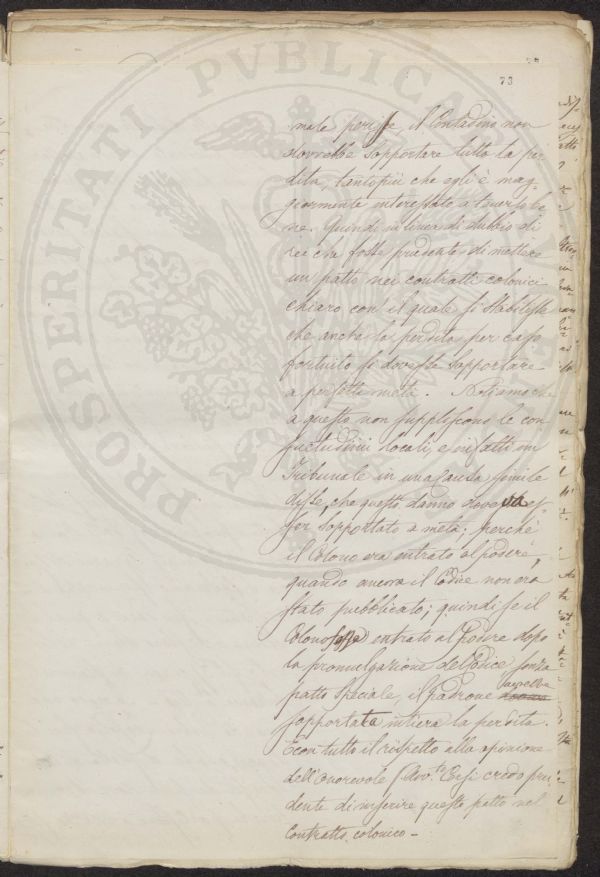 73
male perisse, il Contadino non
dovrebbe sopportare tutta la per
dita, tantopiù che egli è mag-
giormente interessato a tenerlo be
ne. Quindi in linea di dubbio di
rei che fosse prudente di mettere
un patto nei contratti colonici
chiaro con il quale si stabilisse
che anche la perdita per caso
fortuito si dovesse sopportare
a perfetta metà. Notiamo che
a questo non suppliscono le con
suetudini locali, e infatti un
Tribunale in una causa simile
disse, che questo danno doveva es-
ser sopportato a metà; perchè
il Colono era entrato al podere,
quando ancora il Codice non era
stato pubblicato; quindi se il
Colono fosse entrato al Podere dopo
la promulgazione del Codice senza
patto speciale, il padrone avrebbe
sopportata intiera la perdita.
E con tutto il rispetto alla opinione
dell'onorevole Avv.to credo pru
dente di inserire questo patto nel
Contratto colonico -
PROSPERITATI PVBLICAE